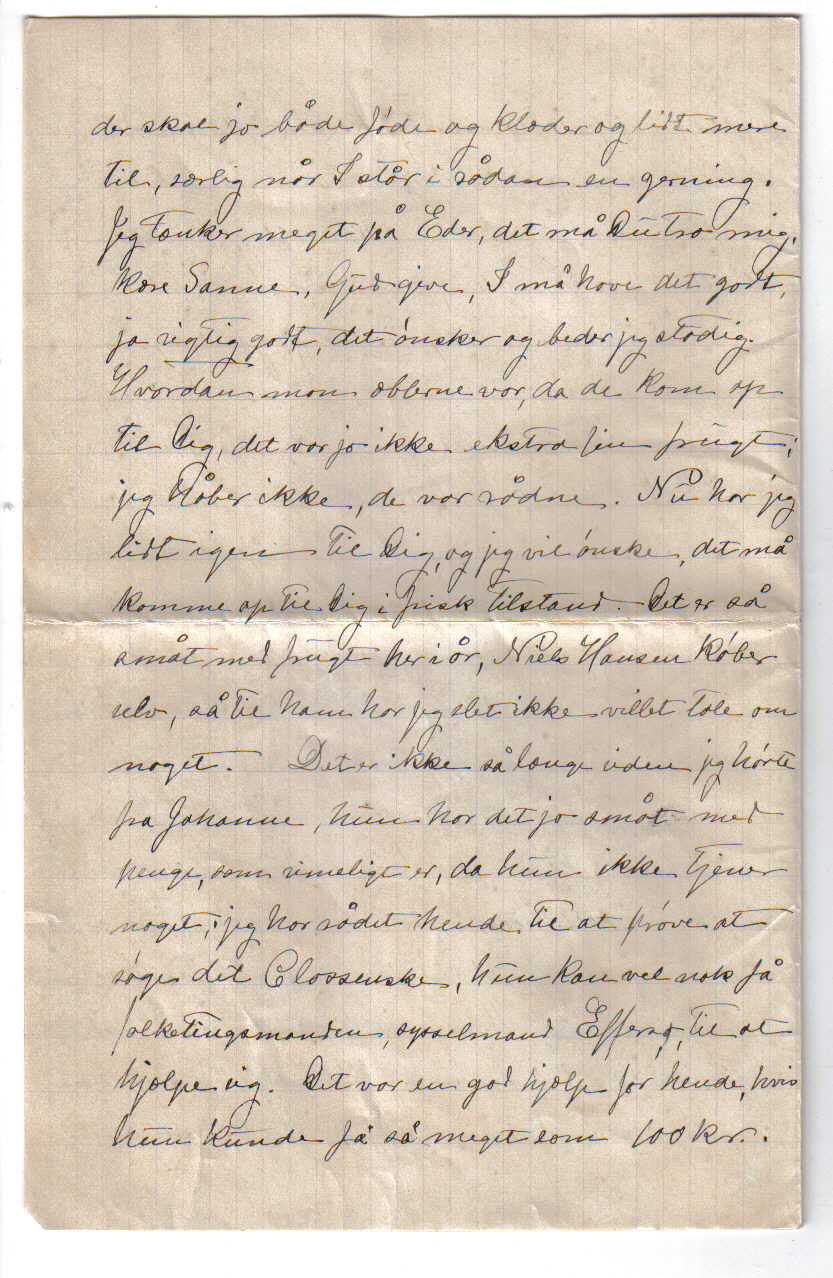 der skal jo både føde og klæder og lidt mere
til, særlig når I står i sådan en gerning.
Jeg tænker meget på Eder, det må Du tro mig,
kære Sanne, Gud give, I må have det godt,
ja rigtig godt, det ønsker og beder jeg stadig.
Hvordan mon æblerne var, da de kom op
til Dig, det var jo ikke ekstra fin frugt;
jeg håber ikke, de var rådne. Nu har jeg
lidt igen til Dig, og jeg vil ønske, det må
komme op til Dig i frisk tilstand. Det er så
småt med frugt her i år, Niels Hansen køber
selv, så til ham har jeg slet ikke villet tale om
noget. Det er ikke så længe siden jeg hørte
fra Johanne, hun har det jo småt med
penge, som rimeligt er, da hun ikke tjener
noget; jeg har rådet hende til at prøve at
søge det Classenske, hun kan vel nok få
folketingsmanden, sysselmand Effersø, til at
hjælpe sig. Det var en god hjælp for hende, hvis
hun kunde få så meget som 100 kr..